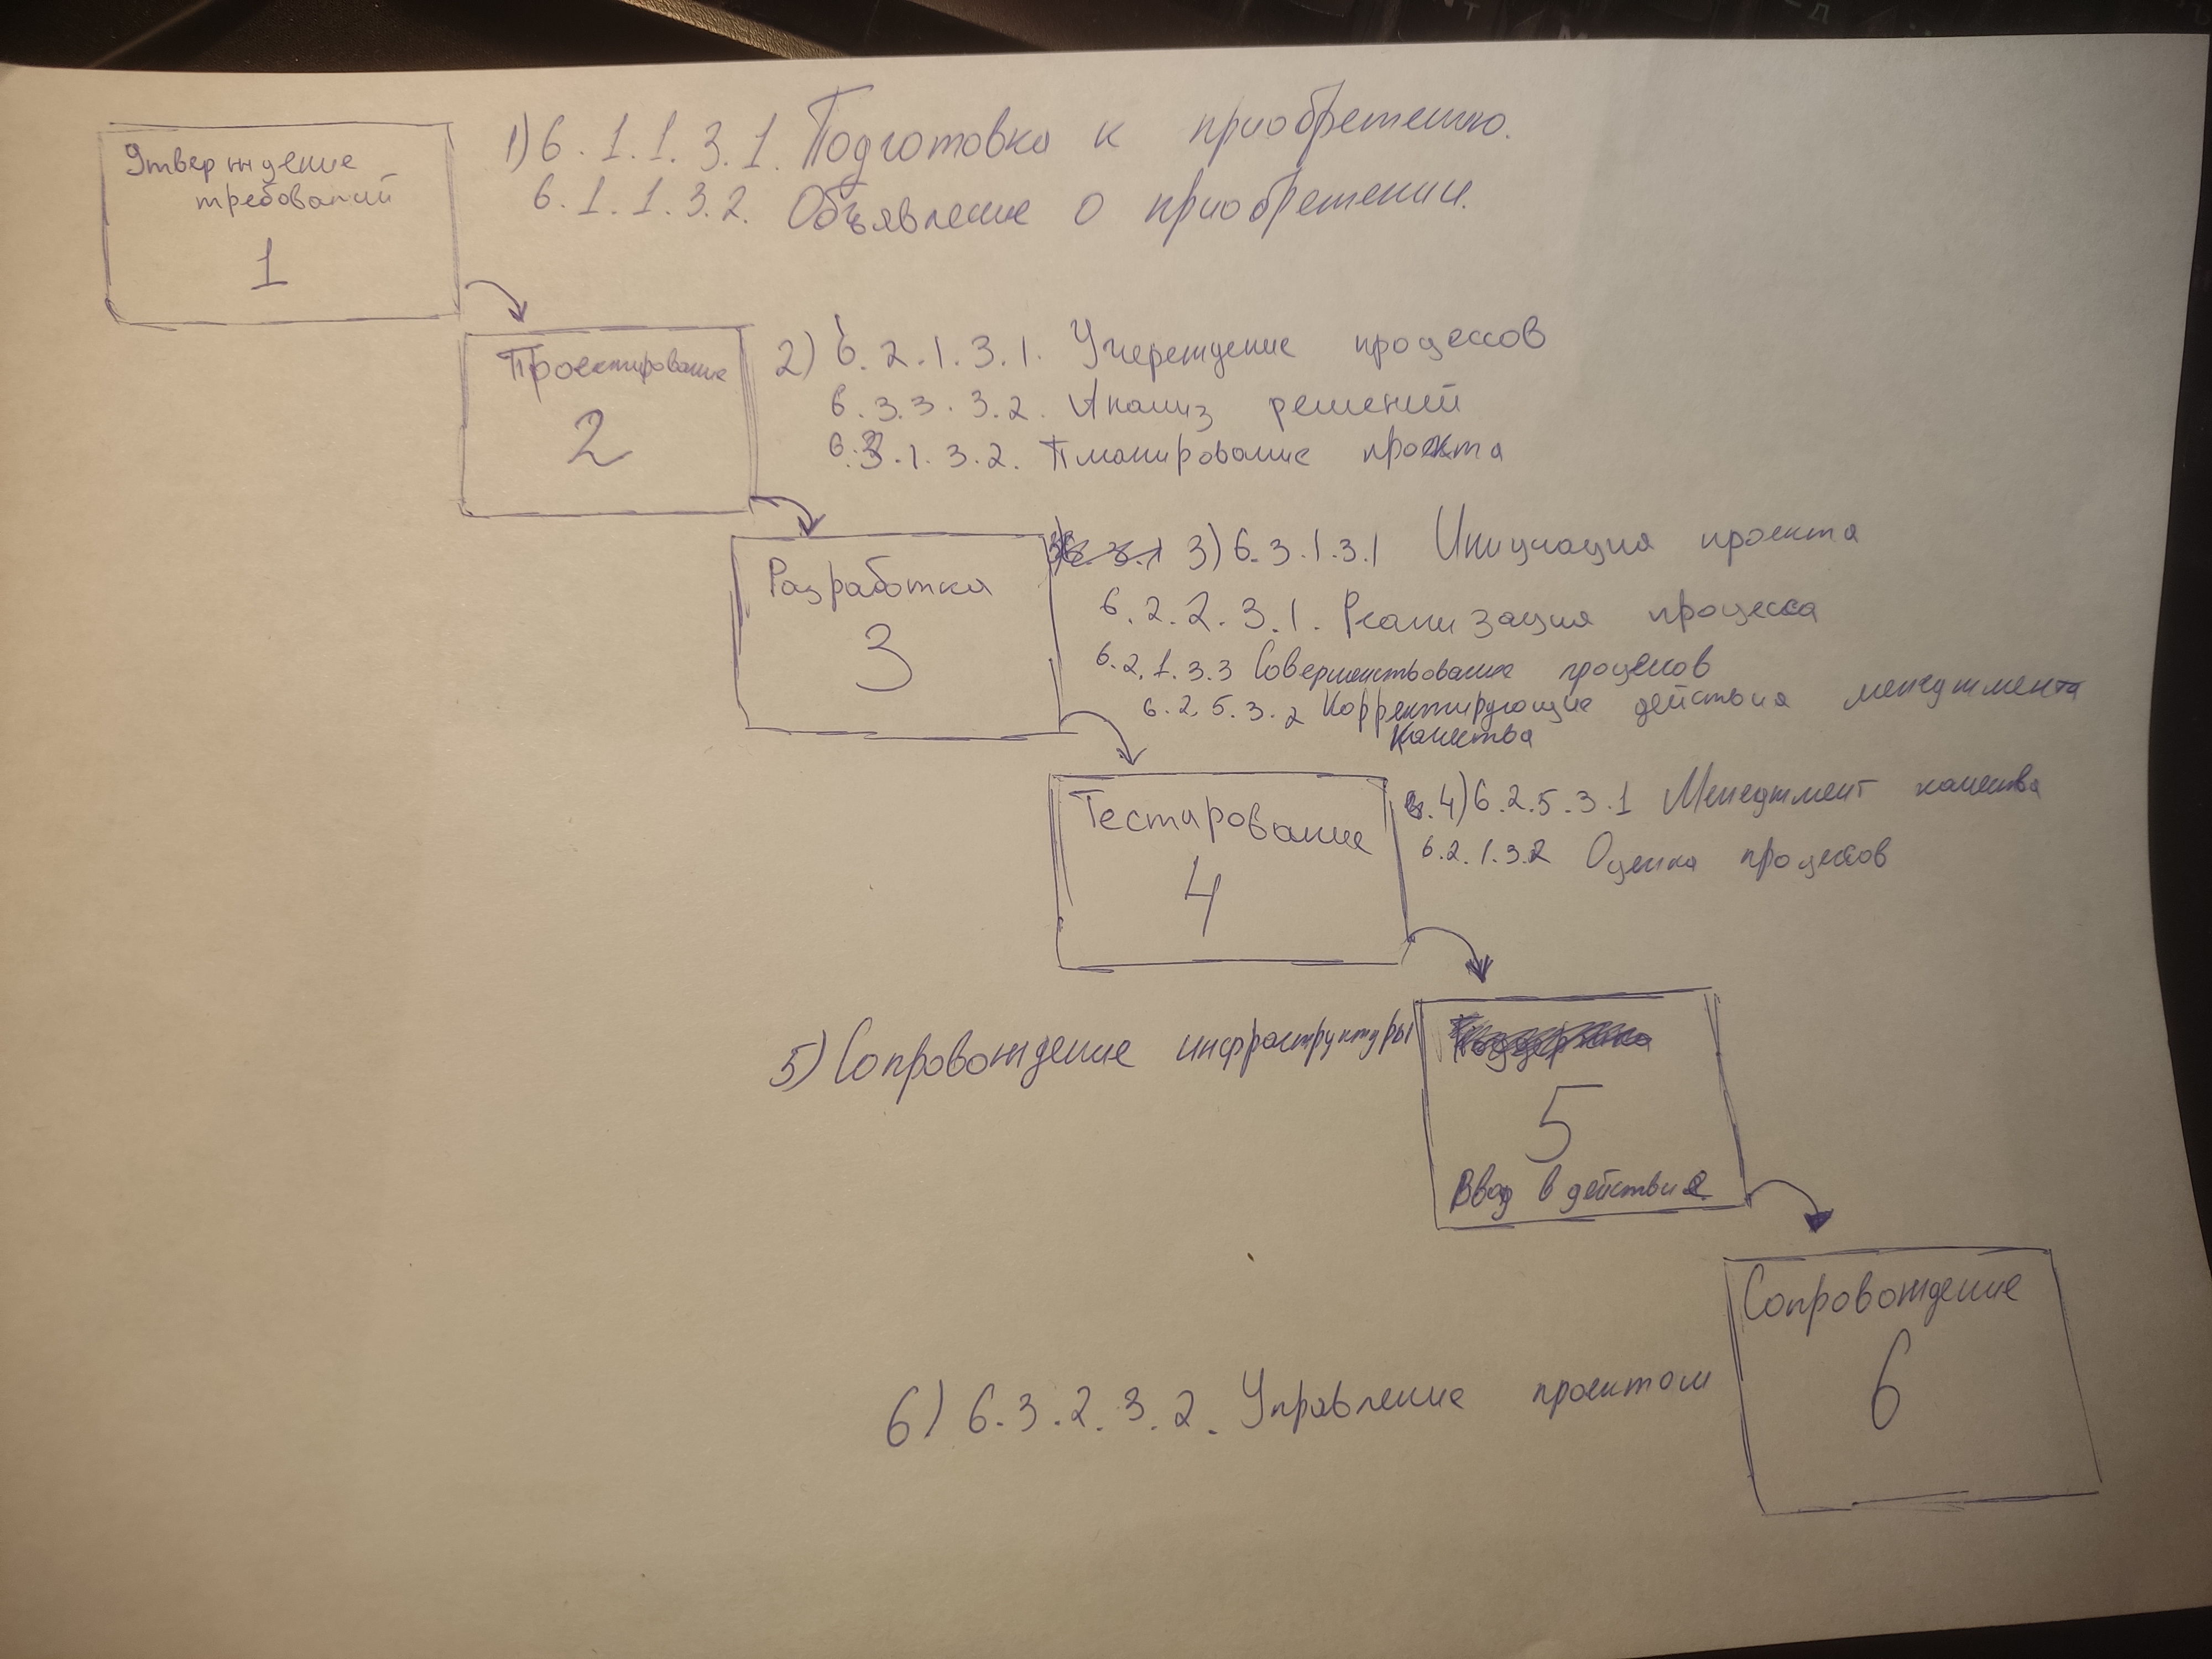 Утверждение
требований
1
1) 6.1.1.3.1. Подготовка к приобретению.
6.1.1.3.2. Объявление о приобретении.
Проектирование
2
2) 6.2.1.3.1. Учереждение процессов
6.3.3.3.2. Анализ решений
6.3.1.3.2. Планирование проекта
Разработка
3
3) 6.3.1.3.1 Инициация проекта
6.2.2.3.1. Реализация процесса
6.2.1.3.3 Совершенствование процессов
6.2.5.3.2 Корректирующие действия менеджмента
качества
Тестирование
4
4) 6.2.5.3.1 Менеджмент качества
6.2.1.3.2 Оценка процессов
5) Сопровождение инфраструктуры
5
Ввод в действие
Сопровождение
6
6) 6.3.2.3.2. Управление проектом